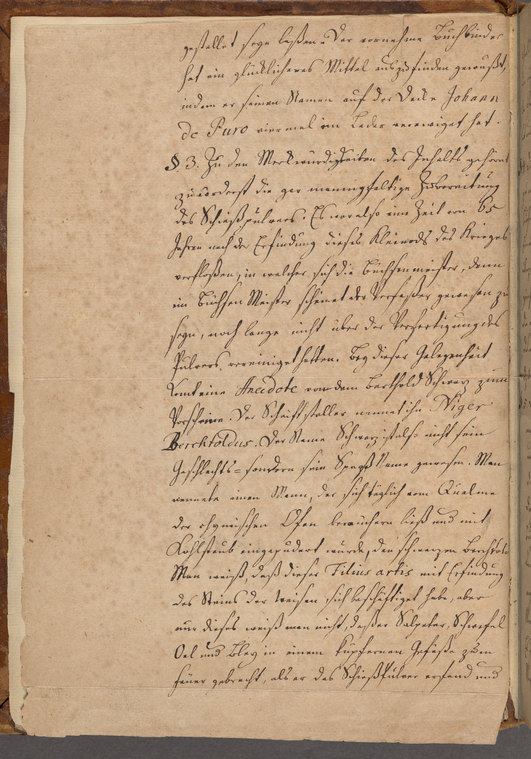 gestellet seyn laßen. Der vornehme Buchbinder
hat ein glücklicheres Mittel auszufinden gewußt,
indem er seinen Namen auf der Decke Johann
de Puro viermal im Leder verewiget hat.
§. 3. Zu den Merkwürdigkeiten des Inhalts gehört
zuvorderst die gar mannigfaltige Zubereitung
des Schießpulvers. Es war also eine Zeit von 65
Jahren nach der Erfindung dieses Kleinods des Krieges
verfloßen, in welcher sich die Büchsenmeister, denn
ein Büchsen Meister scheinet der Verfaßer gewesen zu
seyn, noch lange nicht über der Verfertigung des
Pulvers, vereiniget hatten. Bey dieser Gelegenheit
komt eine Anecdote von dem Berthold Schwarz zum
Vorschein. Der Schriftsteller nennet ihn Niger
Berchtoldus. Der Name Schwarz ist also nicht sein
Geschlechts- sondern sein Spaß Name gewesen. Man
nennete einen Mann, der sich täglich vom Qualme
der chymischen Ofen beräuchern ließ und mit
Kohlstaub eingepudert wurde, den schwarzen Berchtold.
Man weiß, daß dieser Filius artis mit Erfindung
des Steins der Weisen sich beschäftiget habe, aber
nur dieses weiß man nicht, daß er Salpeter, Schwefel
Oel und Bley in einem kupfernen Gefäße zum
Feuer gebracht, als er das Schießpulver erfand und